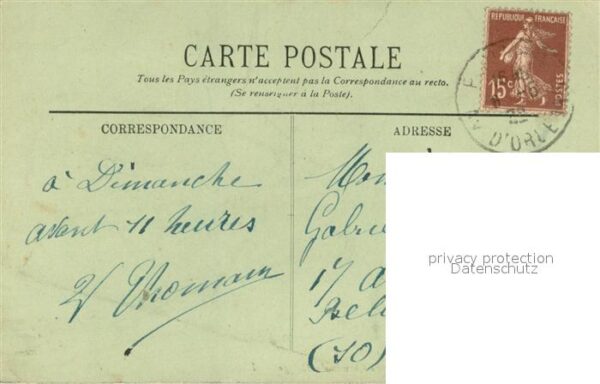 CARTE POSTALE
Tous les Pays étrangers n'acceptent pas la Correspondance au recto.
(Se renseigner à la Poste).
REPUBLIQUE FRANÇAISE
15c
POSTES
D'ORLE
CORRESPONDANCE
ADRESSE
à Dimanche
avant 11 heures
Thomain
Mon
Gabri
17 a
Bel
(10)
privacy protection
Datenschutz